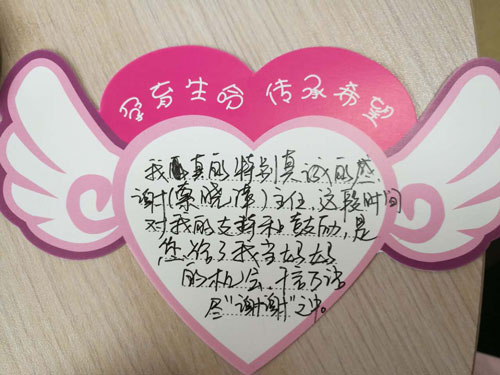 孕育生命 传承希望
我真的特别真诚的感
谢(栗晓度)主任,这段时间
对我的支持和鼓励,是
您给了我当妈妈
的机会,千言万语
尽“谢谢”之中。